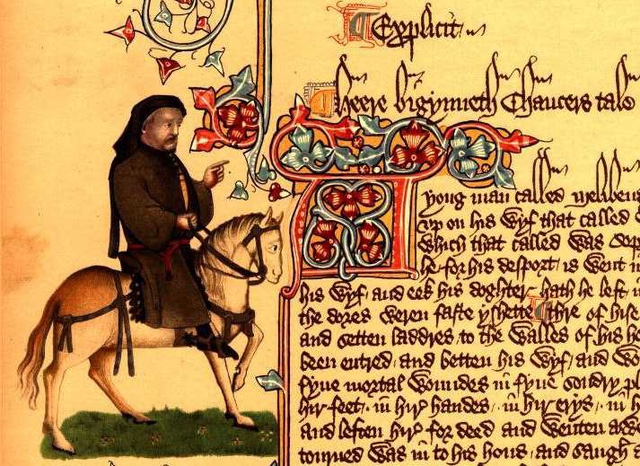 Explicit
Heere bigynneth Chaucers tale
yong man called melibeu
vp on his wyf that called
which that called was Sop
he for his desport is went in
his wyf and eek his doghter hath he left in
the dores weren faste yshette Thre of hise
and setten laddres to the walles of his h
been entred and betten his wyf and wo
fyue mortal woundes in fyue sondry pl
hir feet in hir handes in hir erys in h
and leften hir for deed and wenten awe
tourned was in to his hous and saugh